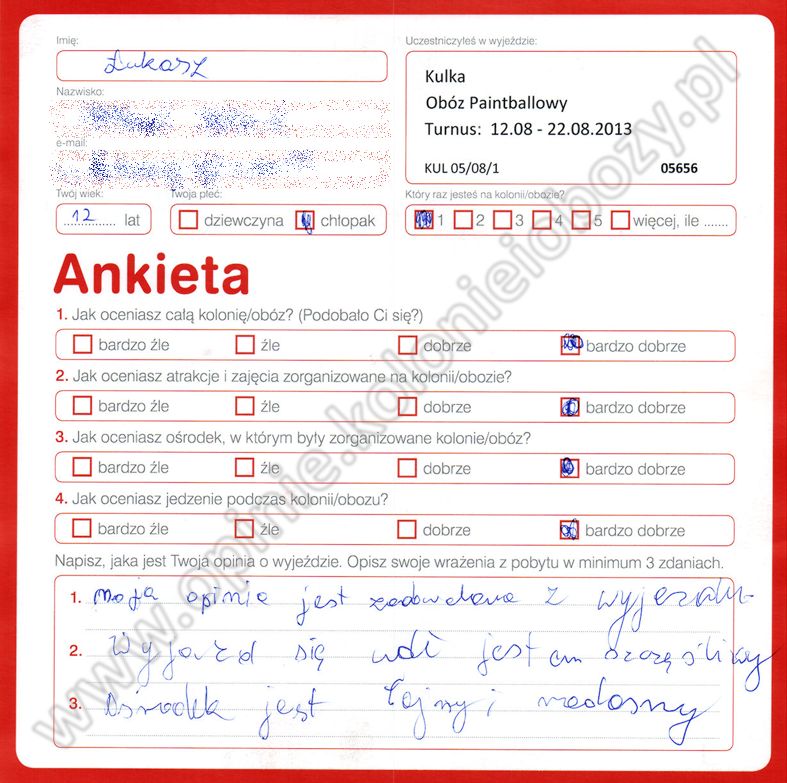 Imię:
Uczestniczyłeś w wyjeździe:
Łukasz
Kulka
Obóz Paintballowy
Turnus: 12.08 - 22.08.2013
KUL 05/08/1 05656
Nazwisko:
e-mail:
Twój wiek: Twoja płeć: Który raz jesteś na kolonii/obozie?
12 lat dziewczyna chłopak 1 2 3 4 5 więcej, ile .......
Ankieta
1. Jak oceniasz całą kolonię/obóz? (Podobało Ci się?)
bardzo źle źle dobrze bardzo dobrze
2. Jak oceniasz atrakcje i zajęcia zorganizowane na kolonii/obozie?
bardzo źle źle dobrze bardzo dobrze
3. Jak oceniasz ośrodek, w którym były zorganizowane kolonie/obóz?
bardzo źle źle dobrze bardzo dobrze
4. Jak oceniasz jedzenie podczas kolonii/obozu?
bardzo źle źle dobrze bardzo dobrze
Napisz, jaka jest Twoja opinia o wyjeździe. Opisz swoje wrażenia z pobytu w minimum 3 zdaniach.
1. moja opinia jest z
2. Wyjazd się jest
3. Ośrodek jest fajny i radosny
www.opinie.kolonieiobozy.pl